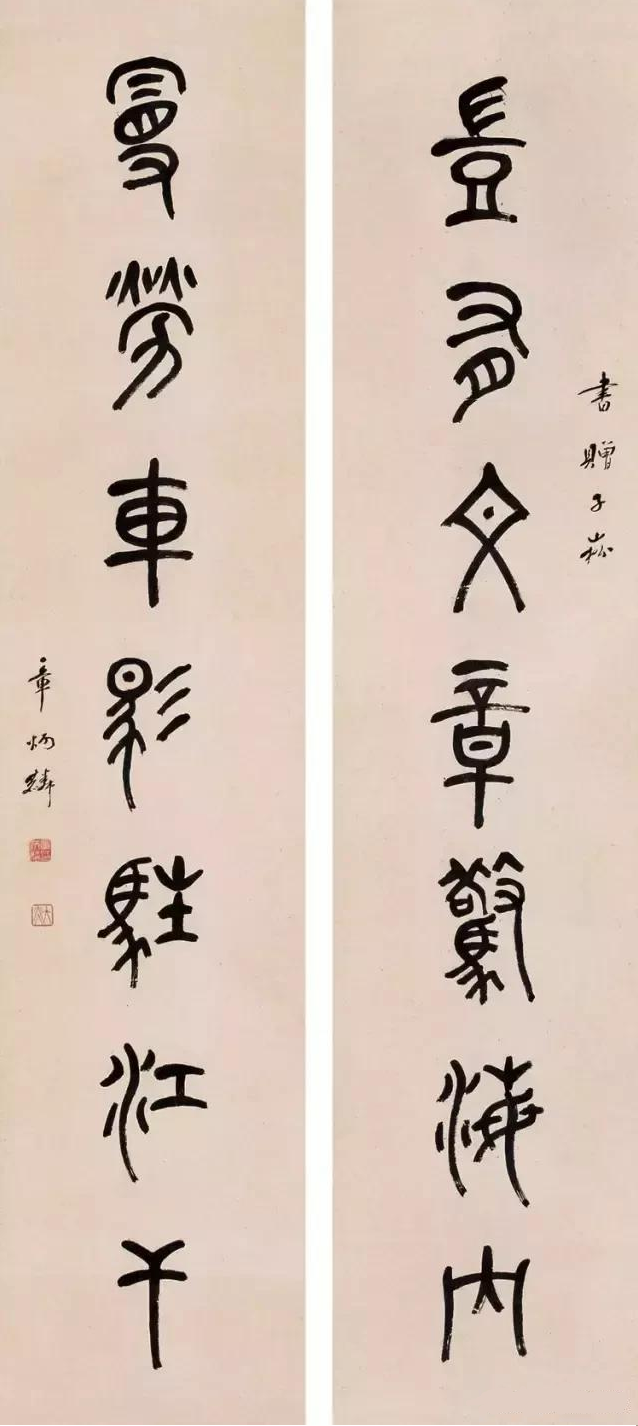 書贈子崧
豈有文章驚海內
曼勞車馬駐江干
章炳麟